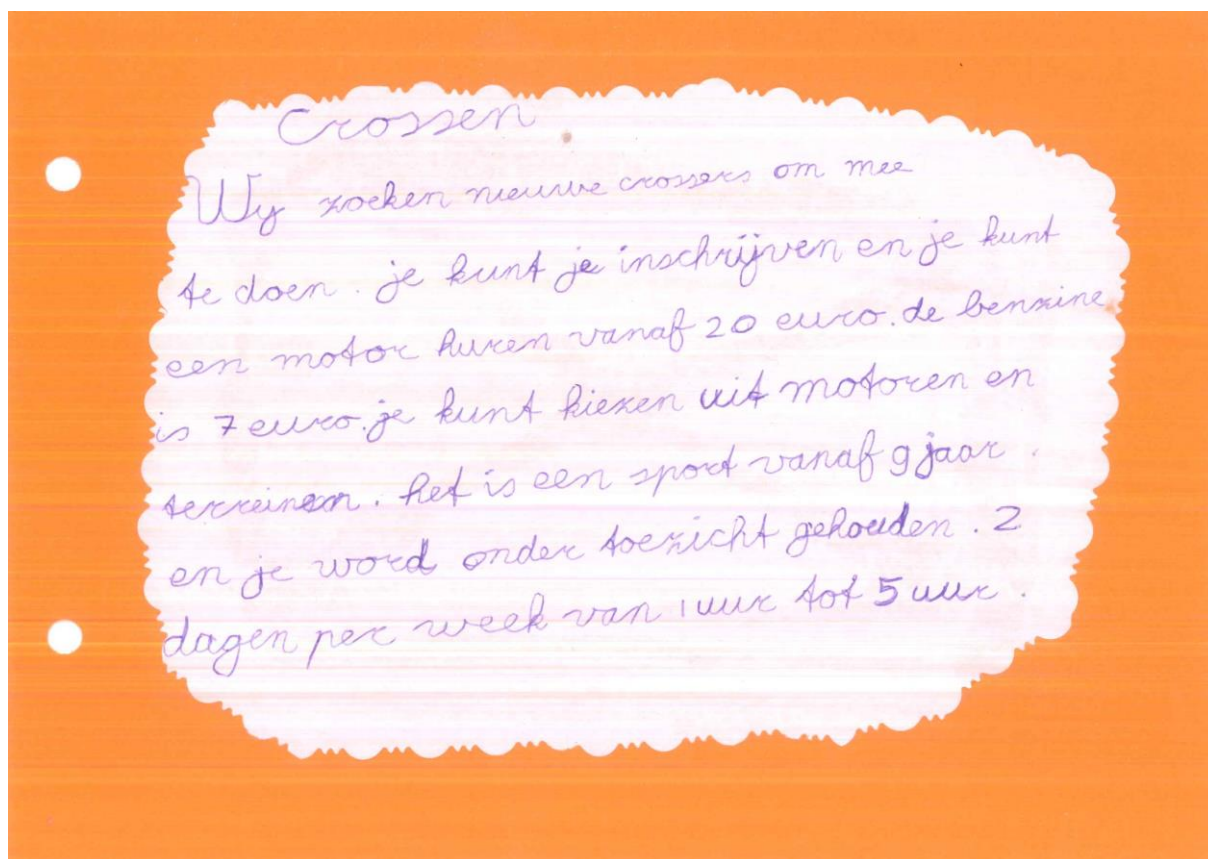 Crossen
Wij zoeken nieuwe crossers om mee
te doen. je kunt je inschrijven en je kunt
een motor huren vanaf 20 euro. de benzine
is 7 euro. je kunt kiezen uit motoren en
terreinen. het is een sport vanaf 9 jaar.
en je word onder toezicht gehouden. 2
dagen per week van 1 uur tot 5 uur.